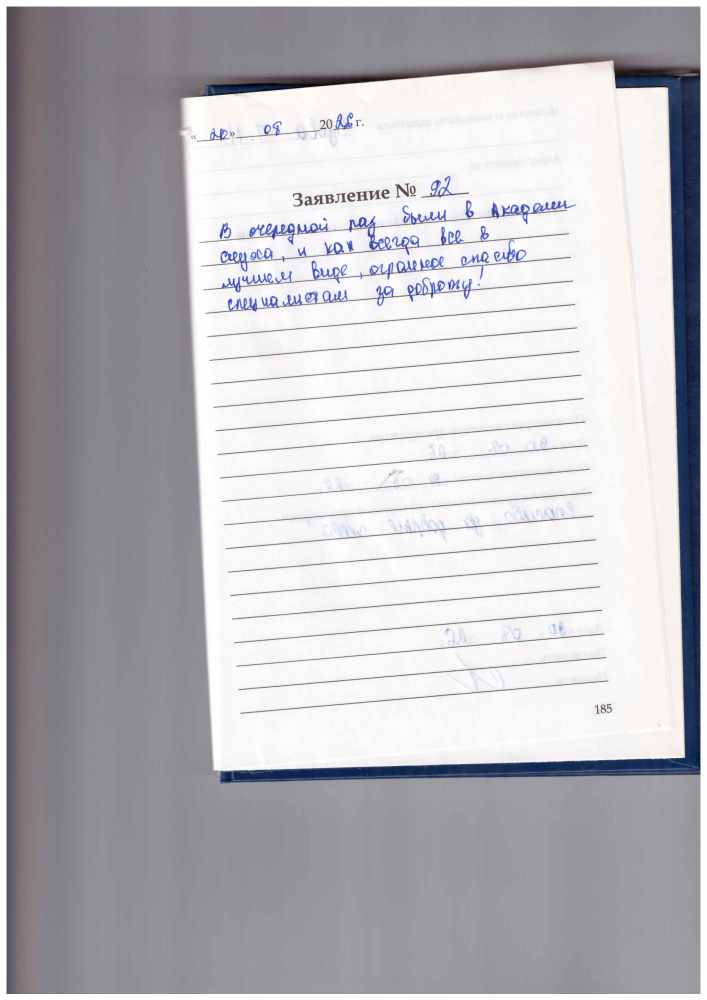 « 20 » 08 2025 г.
Заявление № 92
В очередной раз были в Академии
слуха, и как всегда все в
лучшем виде, огромное спасибо
специалистам за доброту!
185